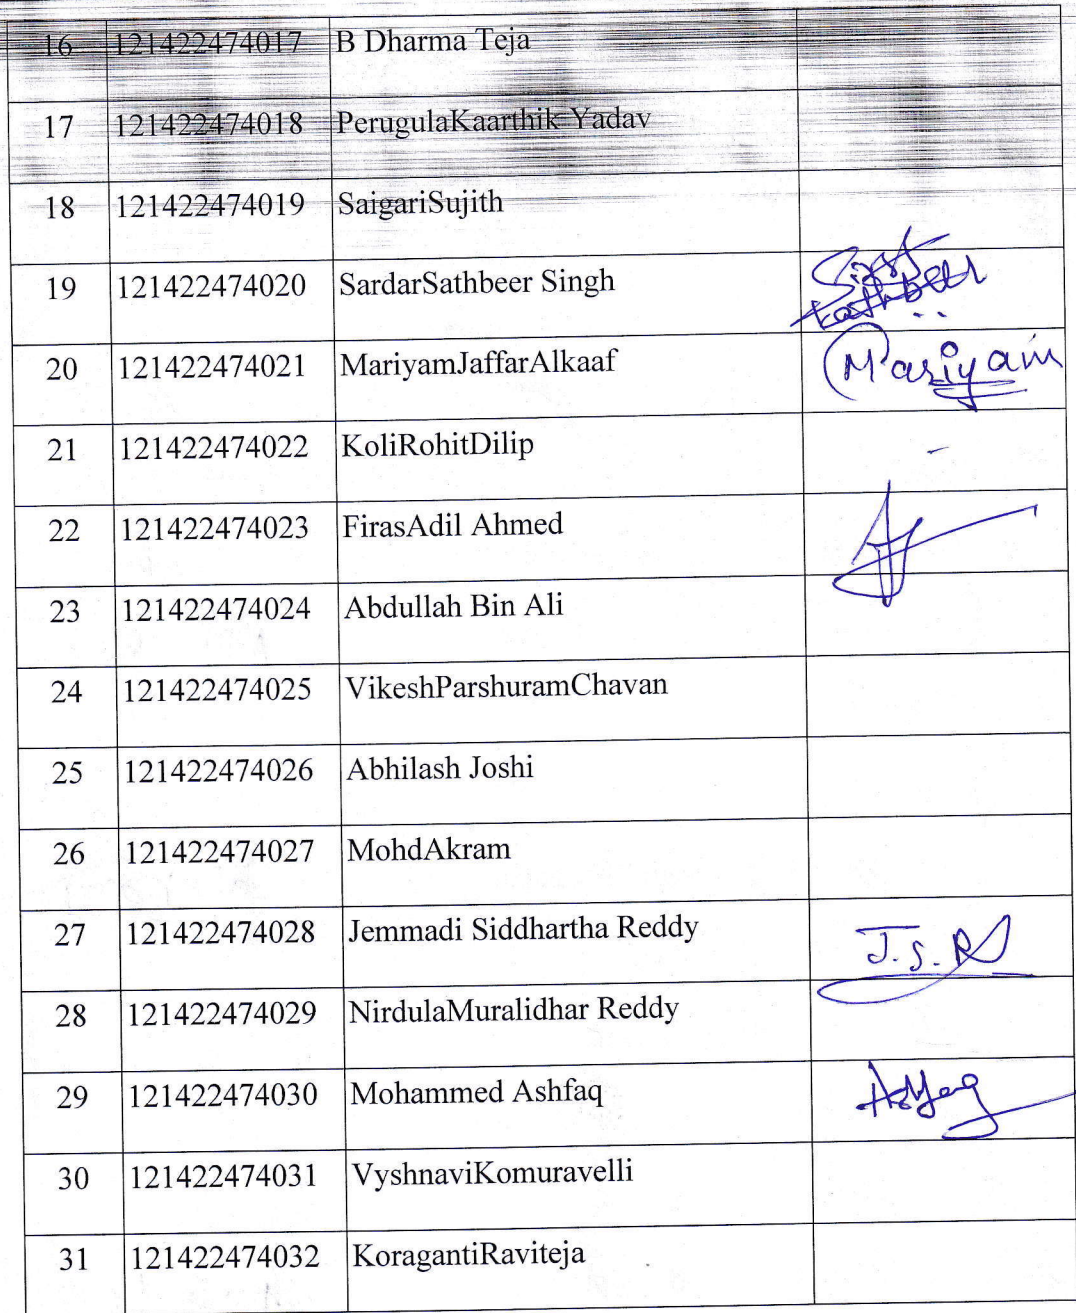 16 121422474017 B Dharma Teja
17 121422474018 PerugulaKaarthik Yadav
18 121422474019 SaigariSujith
19 121422474020 SardarSathbeer Singh
20 121422474021 MariyamJaffarAlkaaf Mariyam
21 121422474022 KoliRohitDilip -
22 121422474023 FirasAdil Ahmed
23 121422474024 Abdullah Bin Ali
24 121422474025 VikeshParshuramChavan
25 121422474026 Abhilash Joshi
26 121422474027 MohdAkram
27 121422474028 Jemmadi Siddhartha Reddy J.S.R
28 121422474029 NirdulaMuralidhar Reddy
29 121422474030 Mohammed Ashfaq
30 121422474031 VyshnaviKomuravelli
31 121422474032 KoragantiRaviteja